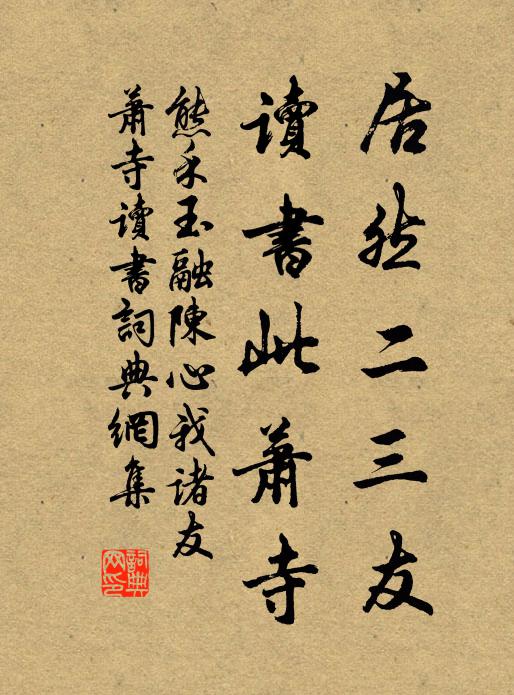 居然二三友
讀書此蕭寺
熊禾玉融陳心我諸友
蕭寺讀書詞典網集
詞典
网印